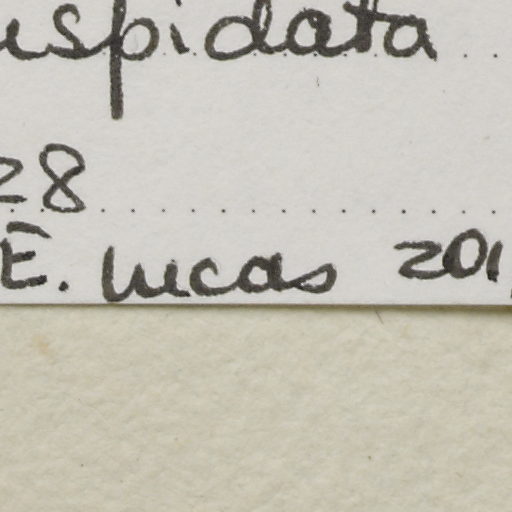 uspidata
28
E. Lucas 201